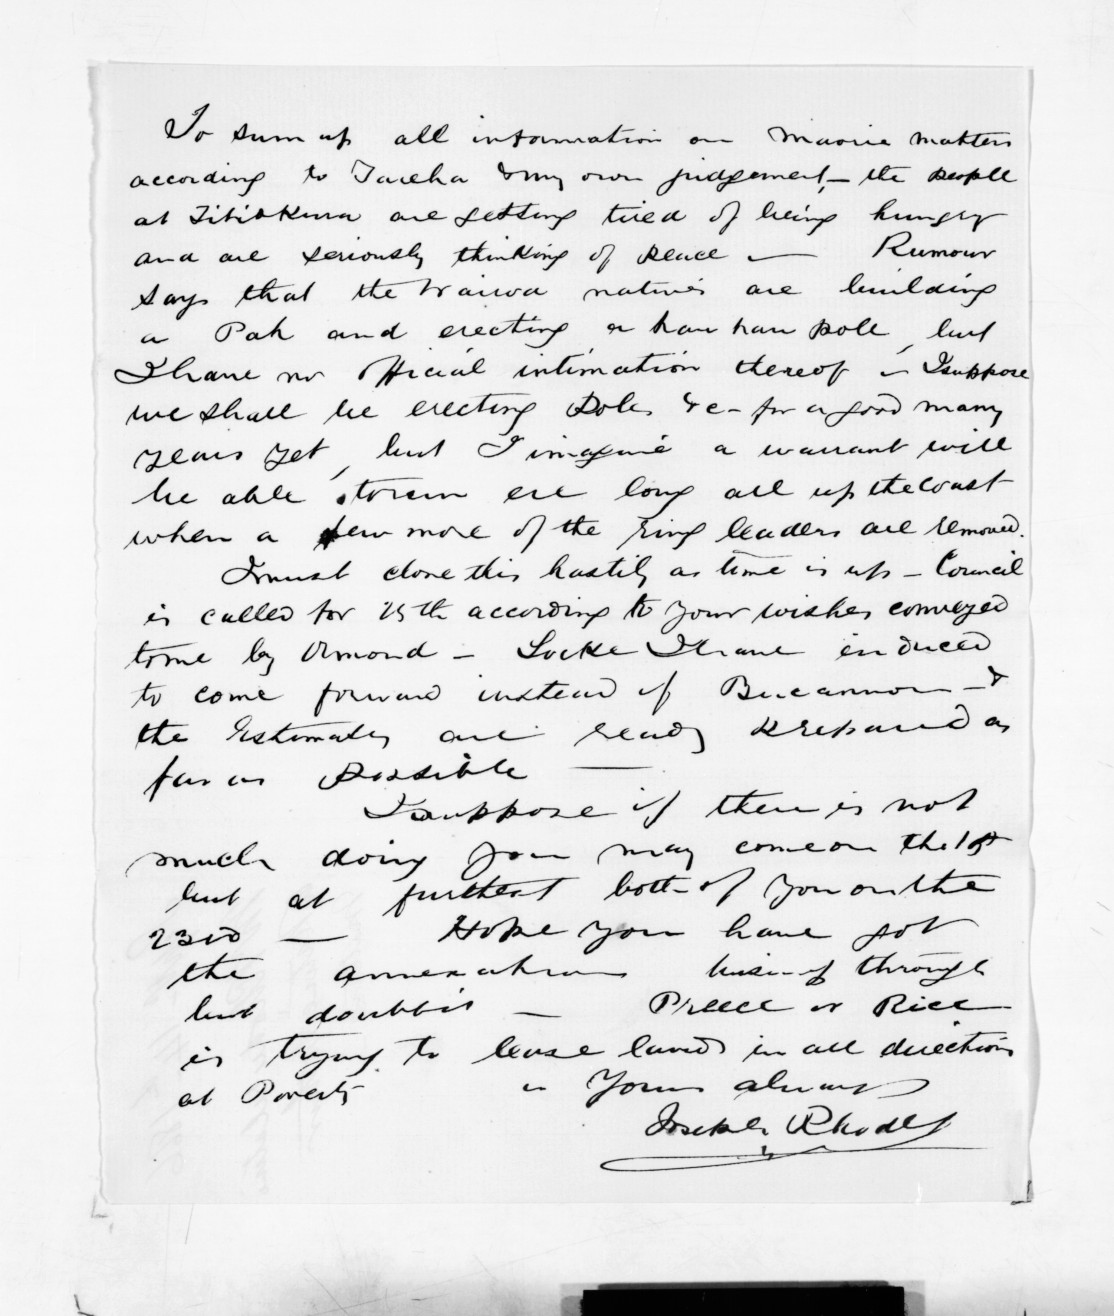 To sum up all information on Maorie matters
according to Tareha & my own judgement, – the people
at Titiokura are getting tired of being hungry
and are seriously thinking of peace — Rumour
says that the Wairoa natives are building
a Pah and erecting a hau hau pole, but
I have no official intimation thereof – I suppose
we shall be erecting Poles &c – for a good many
years yet, but I imagine a warrant will
be able to run ere long all up the Coast
when a few more of the ring leaders are removed.
I must close this hastily as time is up – Council
is called for 25th according to your wishes conveyed
to me by Ormond – Locke I have induced
to come forward instead of Bucannon – &
the Estimates are ready prepared as
far as possible —
I suppose if there is not
much doing you may come on the
but at furthest both of you on the
23rd — Hope you have got
the annexation through
but doubt it — Preece or Rice
is trying to lease lands in all directions
at Poverty – Yours always
Joseph Rhodes